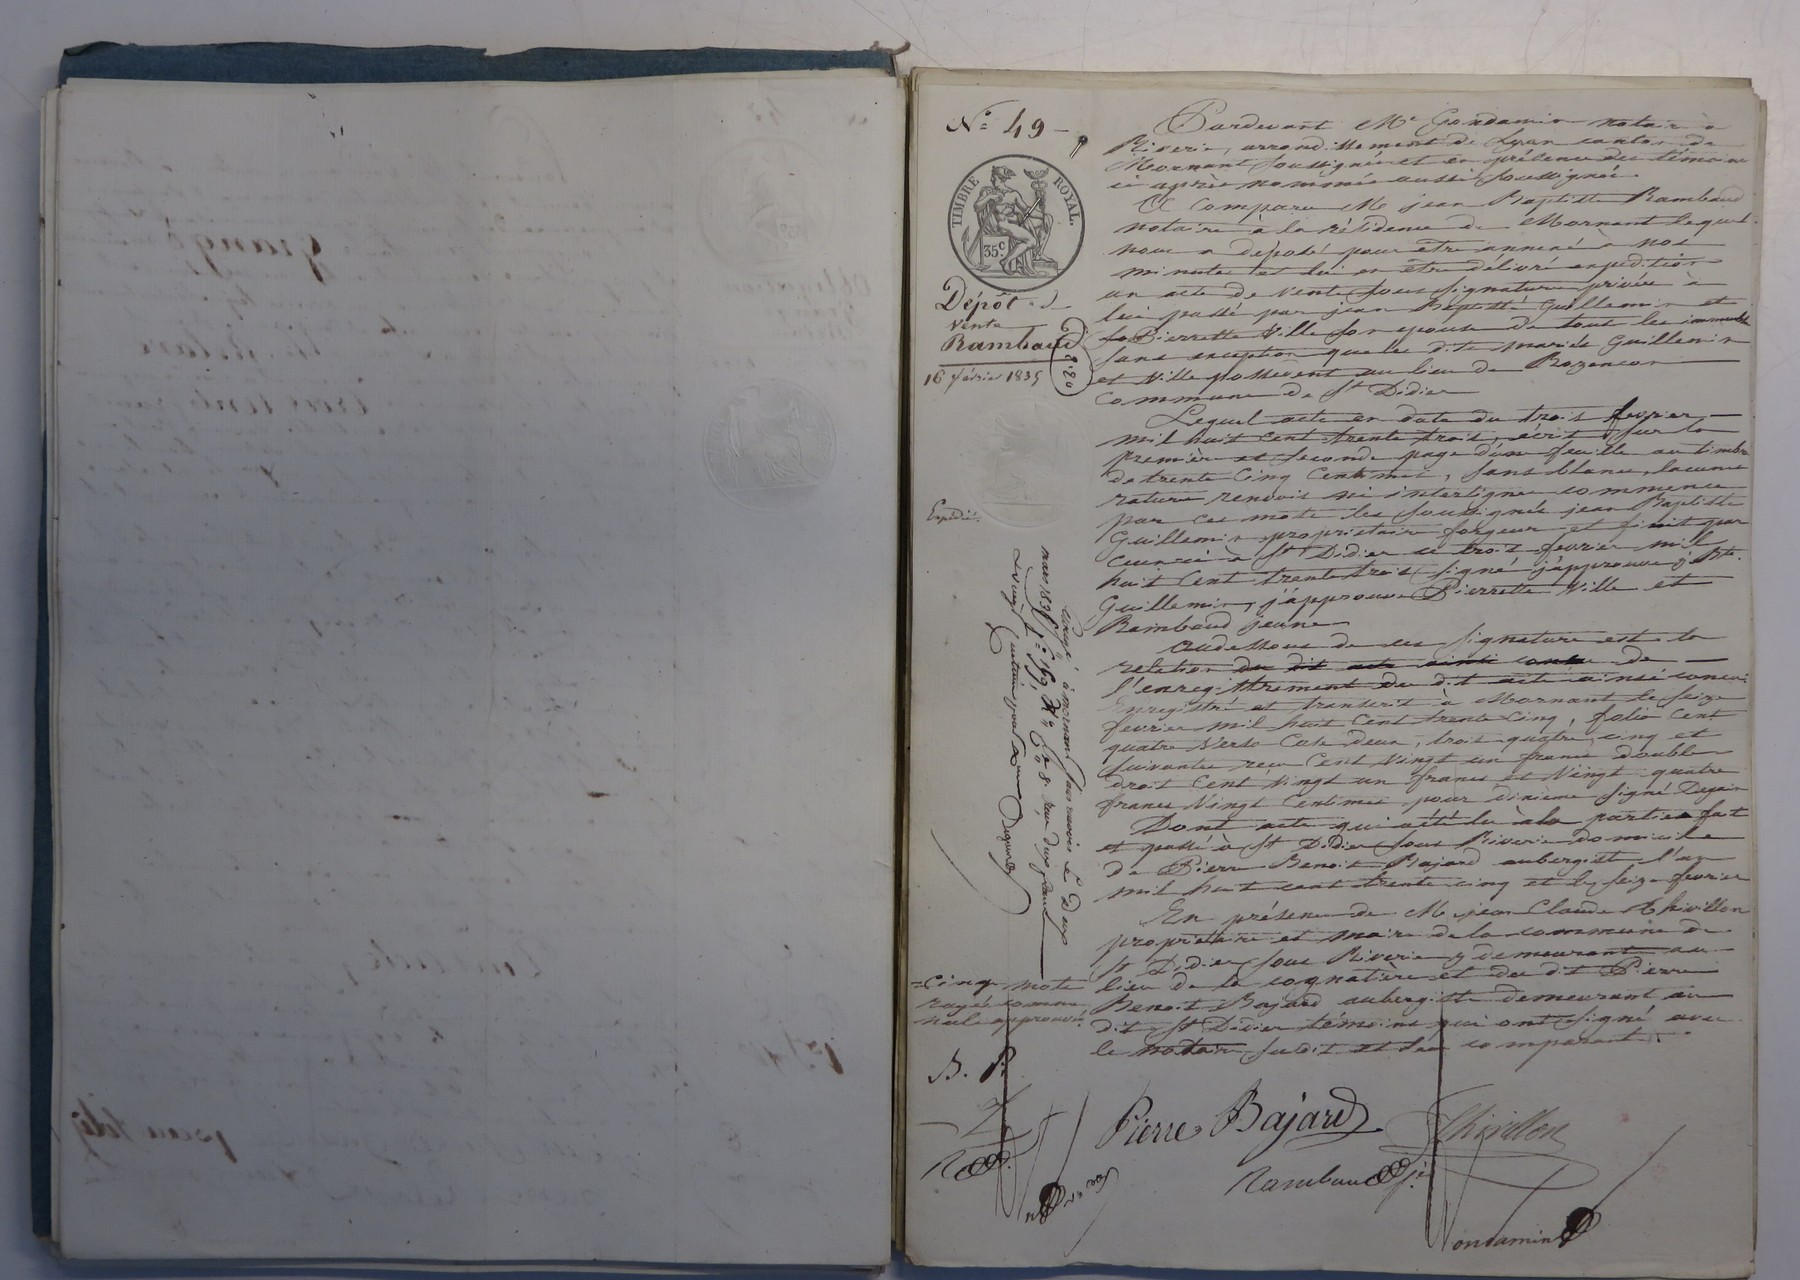 N° 49
TIMBRE ROYAL
35 c
Dépôt d
Vente
Rambaud
16 février 1835
8.20
Expédié.
Pardevant Me Gondamin notaire à
Riverie, arrondissement de Lyon canton de
Mornant soussigné et en présence des témoins
ci après nommés aussi soussignés
A comparu M jean Baptiste Rambaud
notaire à la résidence de Mornant lequel
nous a déposé pour être annexé à nos
minutes et lui en être délivré expédition
un acte de vente sous signature privée à
lui passé par jean Baptiste Guillemin et
Pierrette Ville son epouse de tout les immeubles
sans exception que les dits mariés Guillemin
et Ville possedent au lieu de
commune de St Didier
Lequel acte en date du trois fevrier
mil huit cent trente trois, écrit sur la
premièr et seconde page d'une feuille au timbre
de trente cinq centimes, sans blanc, lacune
rature renvois ni interligne commence
par ces mots les soussignés jean Baptiste
Guillemin propriétaire forgeur et finit par
à St Didier le trois fevrier mil
huit cent trente trois signé j'approuve j Bte.
Guillemin, j'approuve Pierrette Ville et
Rambaud jeune
Audessous de ces signature est la
relation du dit acte ainsi de
l'enregistrement du dit acte ainsi concu
Enregistré et transcrit à Mornant le seize
fevrier mil huit cent trente cinq, folio cent
quatre verso case deux, trois quatre, cinq et
suivantes recu cent vingt un francs double
droit cent vingt un francs et vingt quatre
francs vingt centimes pour dixieme signé
Dont acte qui a été lu à la partie fait
et passé à St Didier sous Riverie domicile
de Pierre Benoit Bajard aubergiste l'an
mil huit cent trente cinq et le seize fevrier
En présence de M jean Claude Thivillon
propriétaire et maire de la commune de
St Didier sous Riverie y demeurant au
lieu de la cognatière et du dit Pierre
Benoit Bajard aubergiste demeurant au
dit St Didier témoins qui ont signé avec
le notaire susdit et le comparant.
mars 1835 f° 169, R° Ce 8. reçu deux francs
cinq mots
rayés comme
nuls approuvés
B. P.
Pierre Bajard
Thivillon
Rambaud je
Gondamin